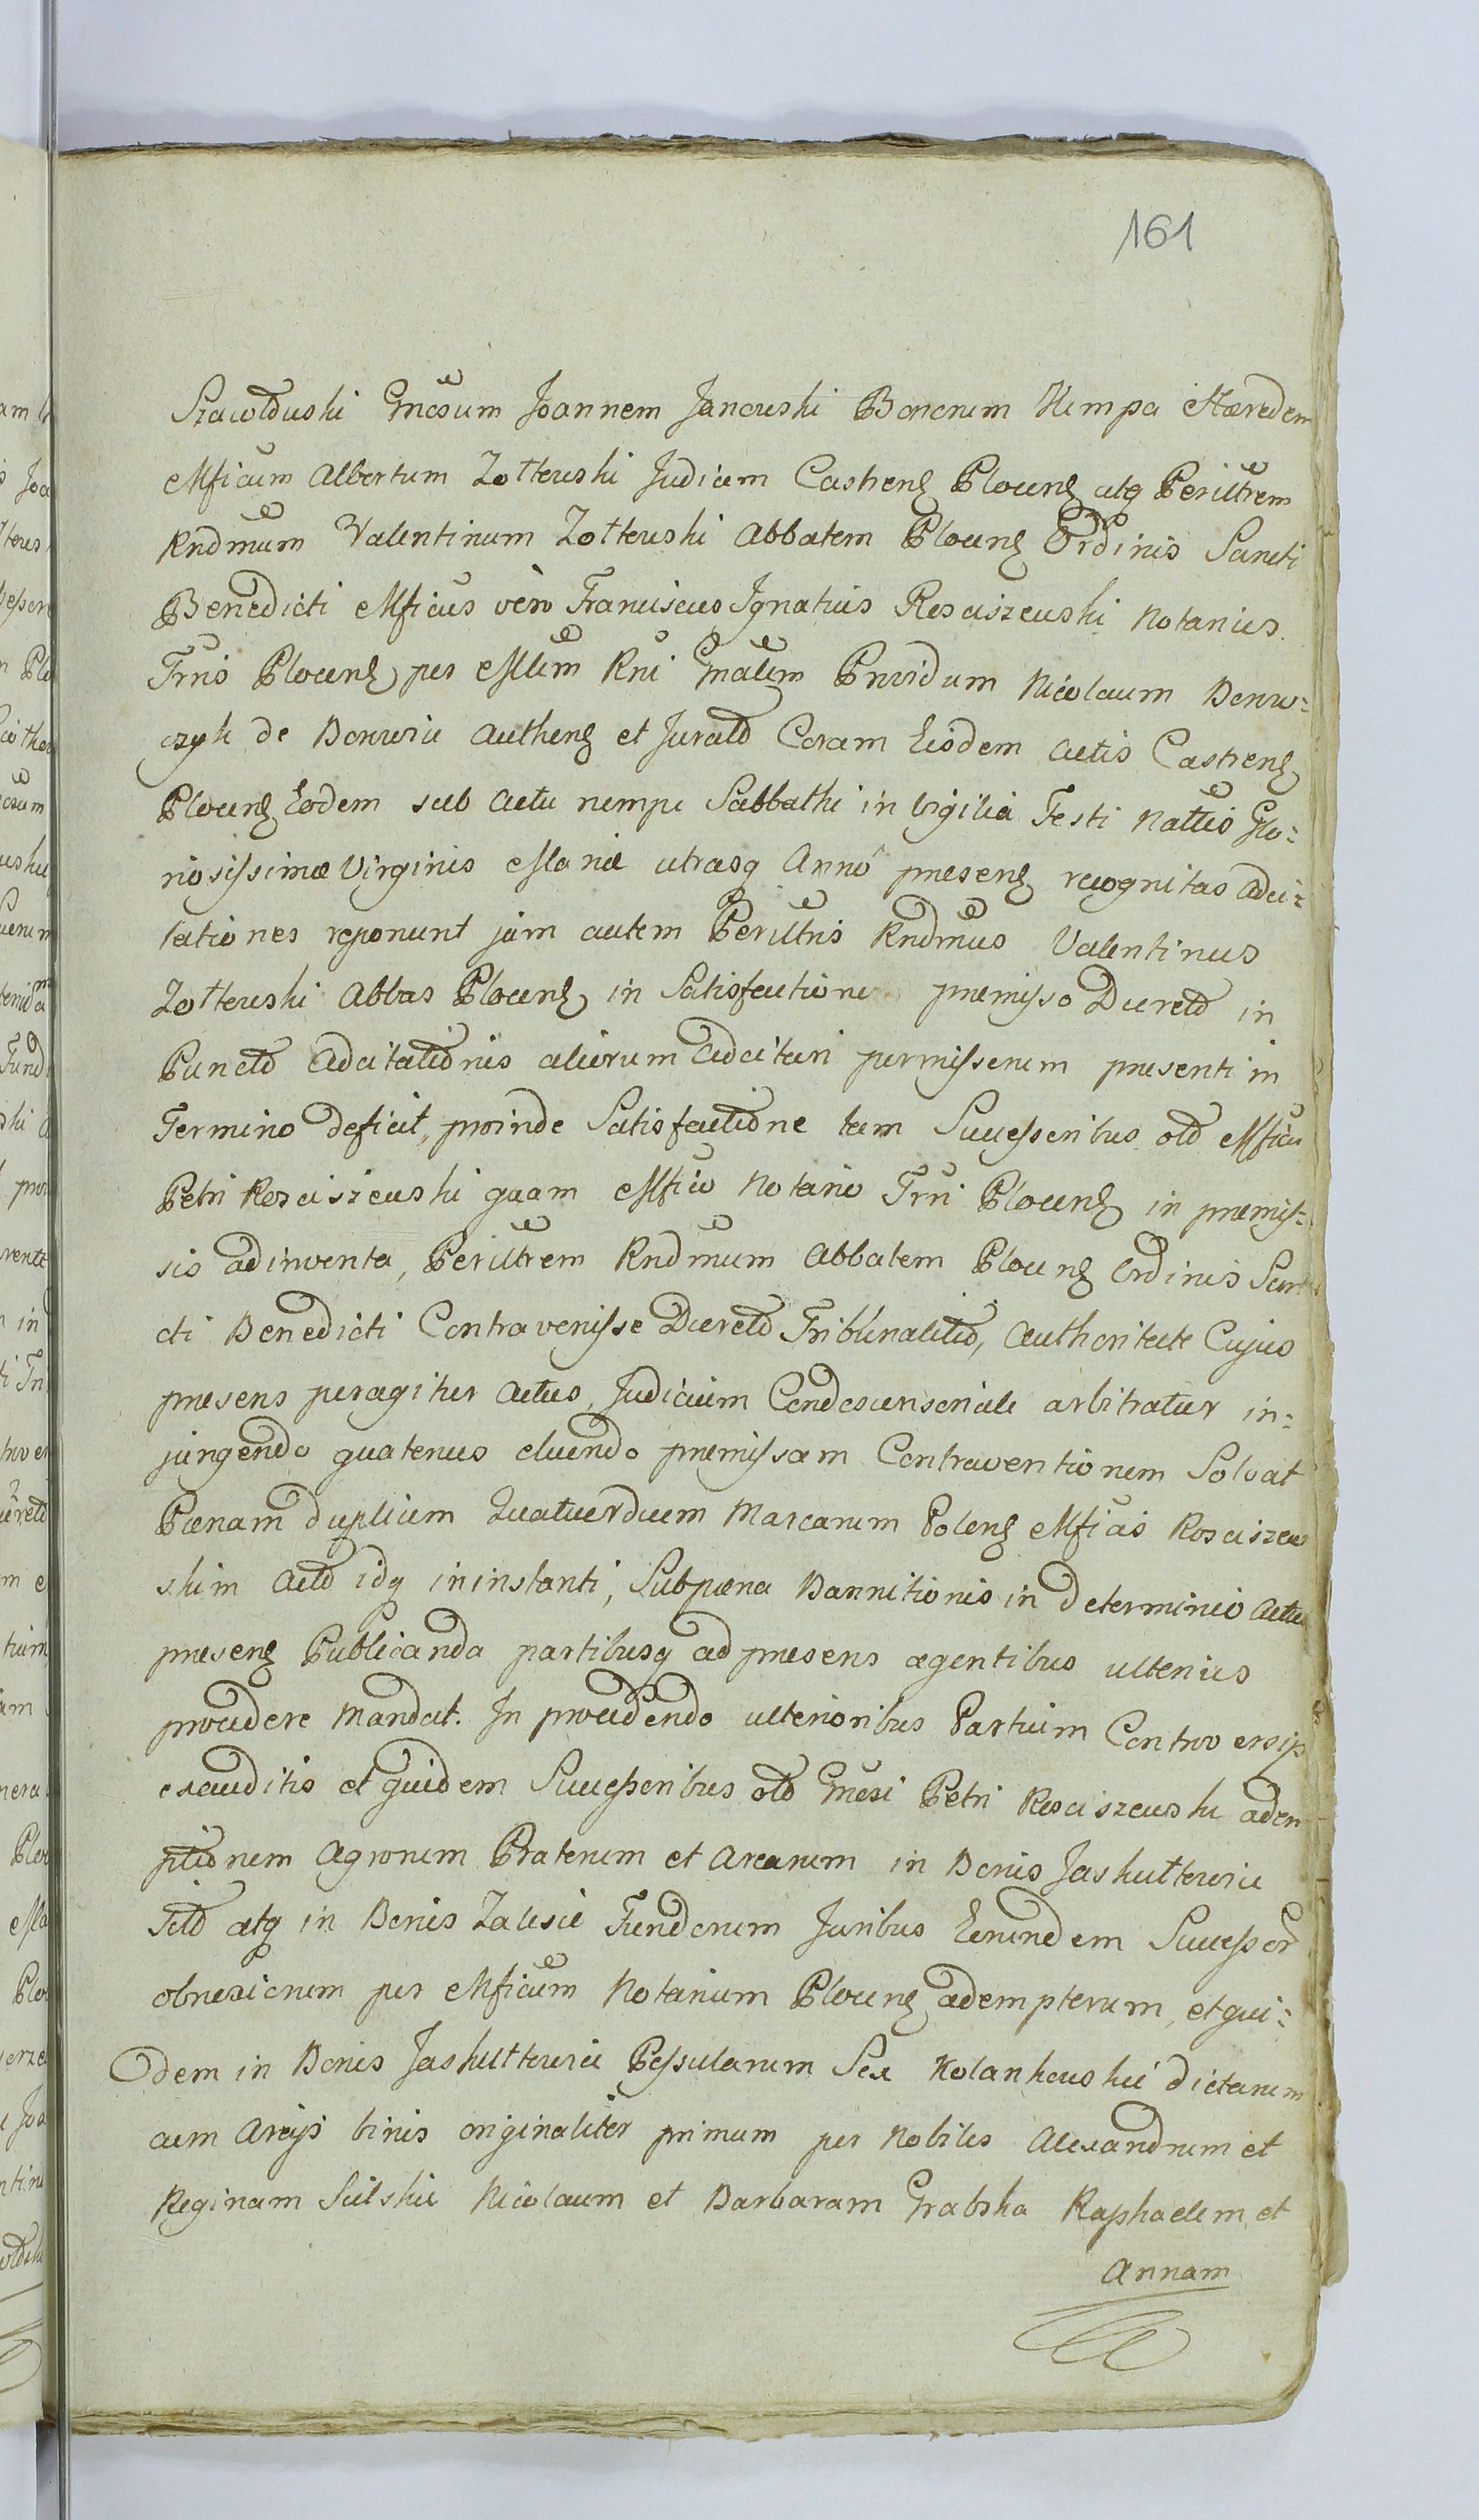 161
Szawłowski Gnosum Joannem Janowski Bonorum Kempa Hæredem
Mficum Albertum Zołtewski Judicem Castrens Plocens atq Perilltrem
Rndmum Valentinum Zołtewski Abbatem Plocens Ordinis Sancti
Benedicti Mficus vero Franciscus Ignatius Rosciszewski Notarius
Trris Plocens per Mllem Rni Gnalem Providum Nicolaum Borow=
czyk de Borowie Authens et Jurato Coram Eisdem Actis Castrens
Plocens Eodem sub Actu nempe Sabbathi in Vigilia Festi Nattis Glo=
riosissimæ Virginis Mariæ utrasq Anno presens recognitas Adci=
tationes reponunt jam autem Perilltris Rndmus Valentinus
Zołtewski Abbas Plocens in Satisfactione premisso Decreto in
Puncto Adcitationis aliorum Adcitari permissorum presenti in
Termino deficit, proinde Satisfactione tam Successoribus olo Mfici
Petri Rosciszewski quam Mfico Notario Trri Plocens in premis=
sis adinventa, Perilltrem Rndmum Abbatem Plocens Ordinis San
cti Benedicti Contravenisse Decreto Tribunalitio, Authoritate Cujus
presens peragitur Actus, Judicium Condescensoriale arbitratur in=
jungendo quatenus eluendo premissam Contraventionem Solvat
Pœnam duplicem Quatuordecim Marcarum Polens Mficis Rosciszew
skim Acto idq in instanti, Sub pœna Bannitionis in determinio Actus
presens Publicanda partibusq ad presens agentibus ulterius
procedere mandat. In procedendo ulterioribus Partium Controversijs
exauditis et quidem Successoribus olo Gnosi Petri Rosciszewski adem
ptionem Agrorum Pratorum et Arearum in Bonis Jaskułtowie
Sito atq in Bonis Zalesie Fundorum Juribus Eorundem Successor
obnoxiorum per Mficum Notarium Plocens ademptorum, et qui=
dem in Bonis Jaskułtowie Pessularum Sex Kolankowskie dictarum
cum Areijs binis originaliter primum per Nobiles Alexandrum et
Reginam Sulskie Nicolaum et Barbaram Grabska Raphaelem et
Annam